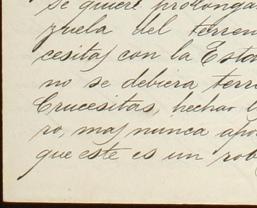 se quiere prolonga
zuela del terren
cesitas con la Esta
no se debiera terr
Crucesitas, hechar l
ro, mas nunca apo
que este es un rob